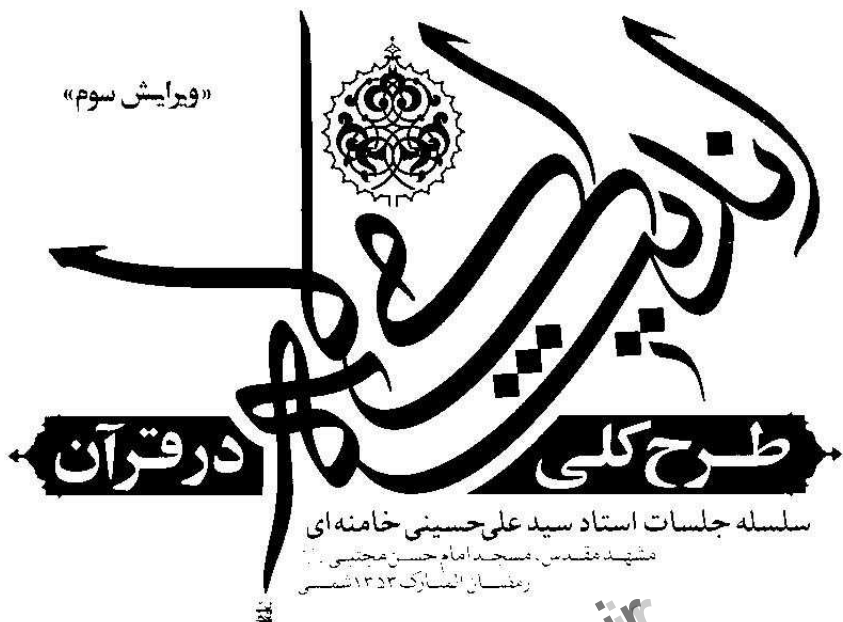 «ویرایش سوم»
اندیشه اسلامی
طرح کلی
در قرآن
سلسله جلسات استاد سید علی حسینی خامنه ای
مشهد مقدس، مسجد امام حسن مجتبی
رمضان المبارک ۱۳۵۳ شمسی